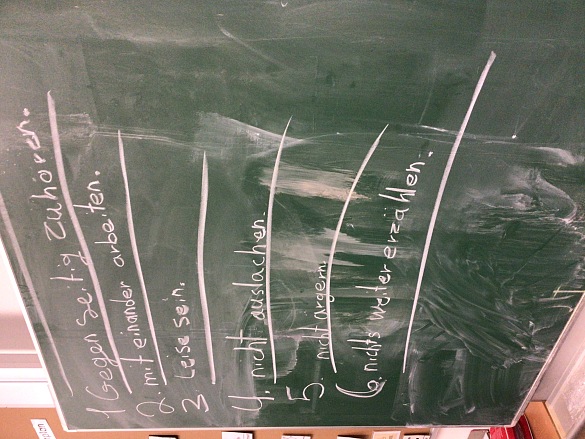 1 Gegenseitig zuhören.
2. miteinander arbeiten.
3 Leise sein.
4. nicht auslachen.
5. nicht ärgern.
6. nichts weiter erzählen.
plan